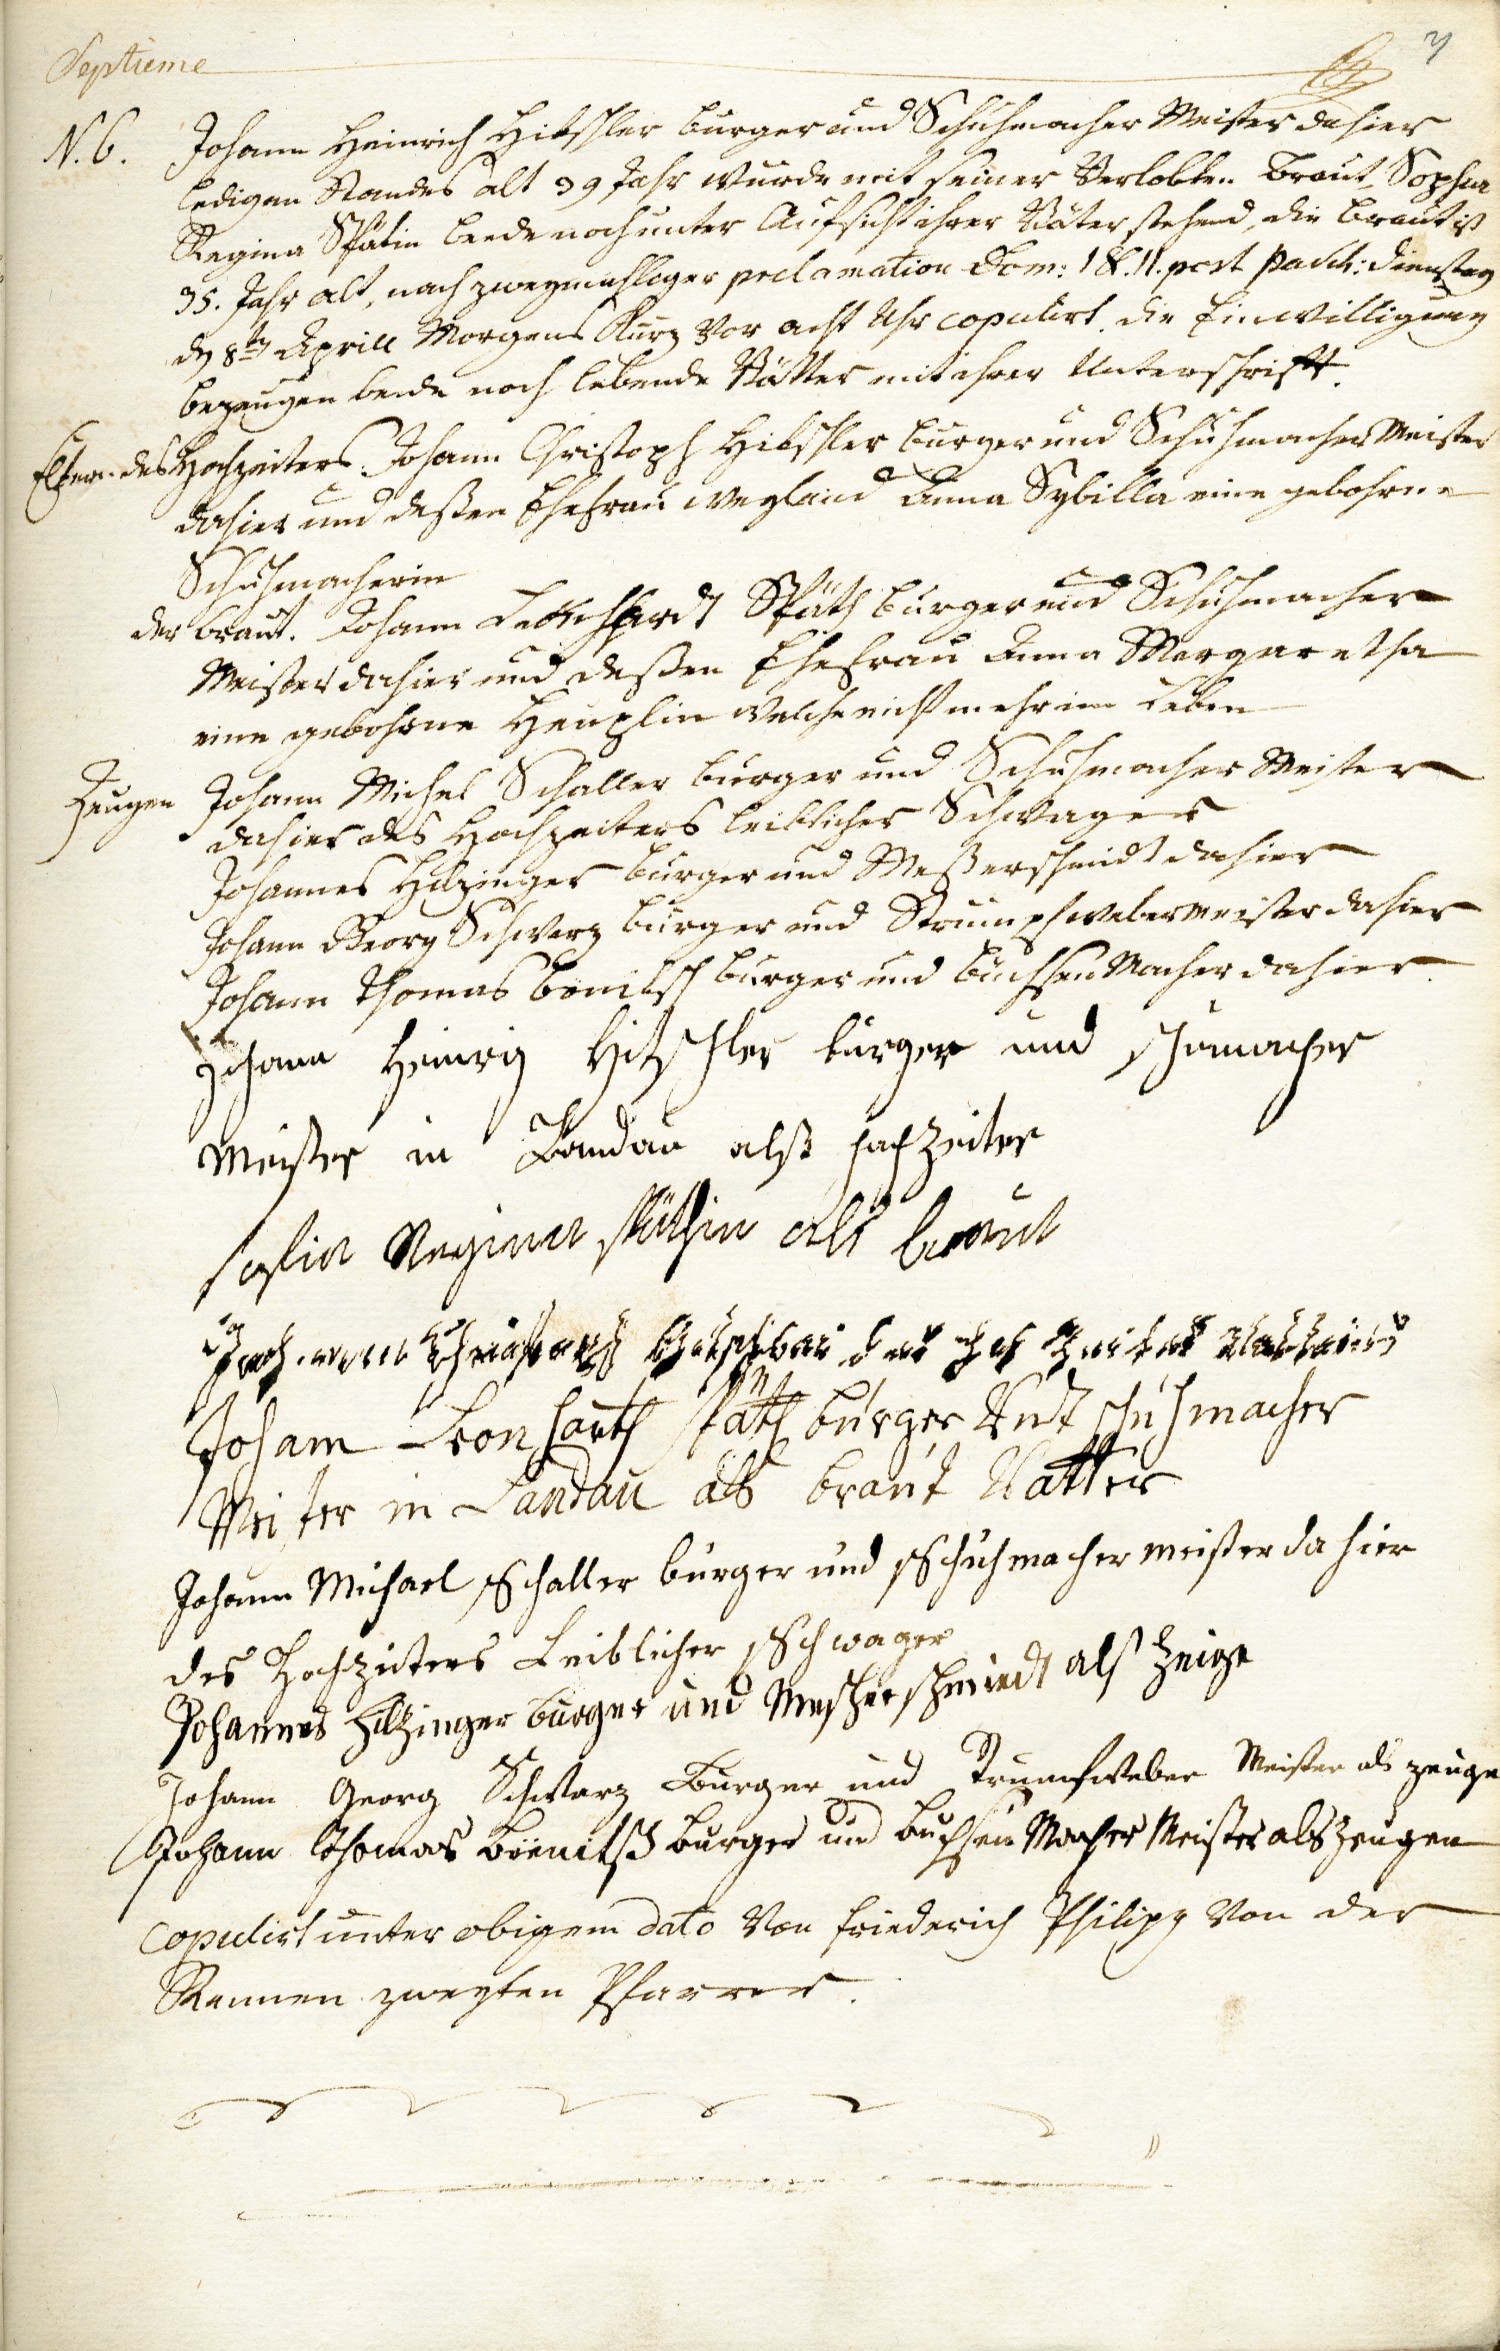 Septieme
7
N. 6. Johann Heinrich Hitschler burger und Schuhmacher Meister dahier
ledigen Standes alt 39 Jahr wurde mit seiner Verlobten Braut Sophia
Regina Spätin beede noch unter Aufsicht ihrer Väter stehend, die braut ist
35. Jahr alt, nach zweymahliger proclamation Dom: 1 & 11. post Pasch: Dienstag
d 8ten Aprill Morgens Kurz vor acht Uhr copulirt. die Einwilligung
bezeugen beede noch lebende Vätter mit ihrer Unterschrifft.
Eltern des Hochzeiters. Johann Christoph Hitschler burger und Schuhmacher Meister
dahier und deßen Ehefrau weyland Anna Sybilla eine gebohrne
Schuhmacherin
der braut. Johann Leonhardt Späth burger und Schuhmacher
Meister dahier und deßen Ehefrau Anna Margaretha
eine gebohrne Heuplin welche nicht mehr im Leben
Zeugen Johann Michel Schaller burger und Schuhmacher Meister
dahier des Hochzeiters leiblicher Schwager
Johannes Hilzinger burger und Meßerschmidt dahier
Johann Georg Schwarz burger und Strumpfwebermeister dahier
Johann Thomas bönitsch burger und büchsen Macher dahier.
Johann Heinrig Hitschler burger und schumacher
Meister in Landau alß hochzeiter
sofia Regina späthin als braut
Johann Leonharth späth bürger Undt schuhmacher
Meister in Landau als braut Vatter
Johann Michael Schaller burger und Schuhmacher meister da hier
des Hochziters Leiblicher Schwager
Johannes Hilzinger burger und Mescherschmiedt als Zeige
Johann Georg Schwarz Burger und Strumfweber Meister als zeuge
Johann Thomas bönitsch burger und buchsen Macher Meister als Zeugen
copulirt unter obigem dato von Friederich Philipp von der
Rennen zweyten Pfarrer.